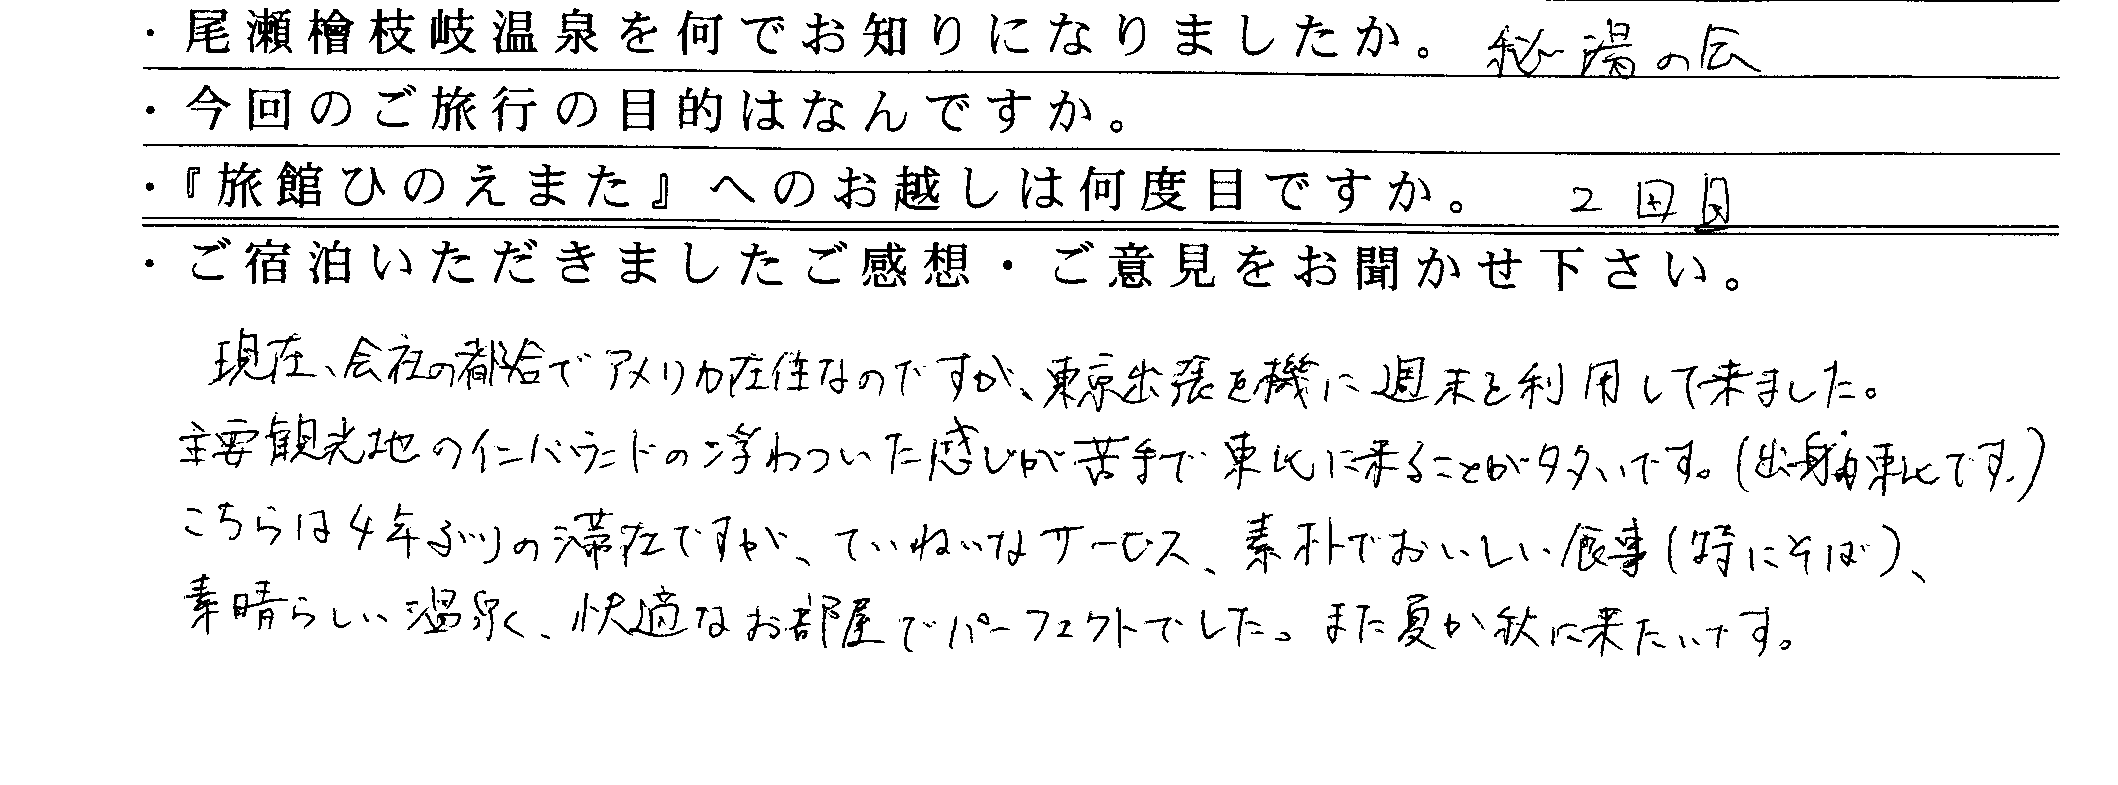 ・尾瀬檜枝岐温泉を何でお知りになりましたか。 秘湯の会
・今回のご旅行の目的はなんですか。
・『旅館ひのえまた』へのお越しは何度目ですか。 2回目
・ご宿泊いただきましたご感想・ご意見をお聞かせ下さい。
現在、会社の都合でアメリカ在住なのですが、東京出張を機に週末を利用して来ました。
主要観光地のインバウンドの浮わついた感じが苦手で東北に来ることが多いです。(出身も東北です。)
こちらは4年ぶりの滞在ですが、ていねいなサービス、素朴でおいしい食事(特にそば)、
素晴らしい温泉く、快適なお部屋でパーフェクトでした。また夏か秋に来たいです。